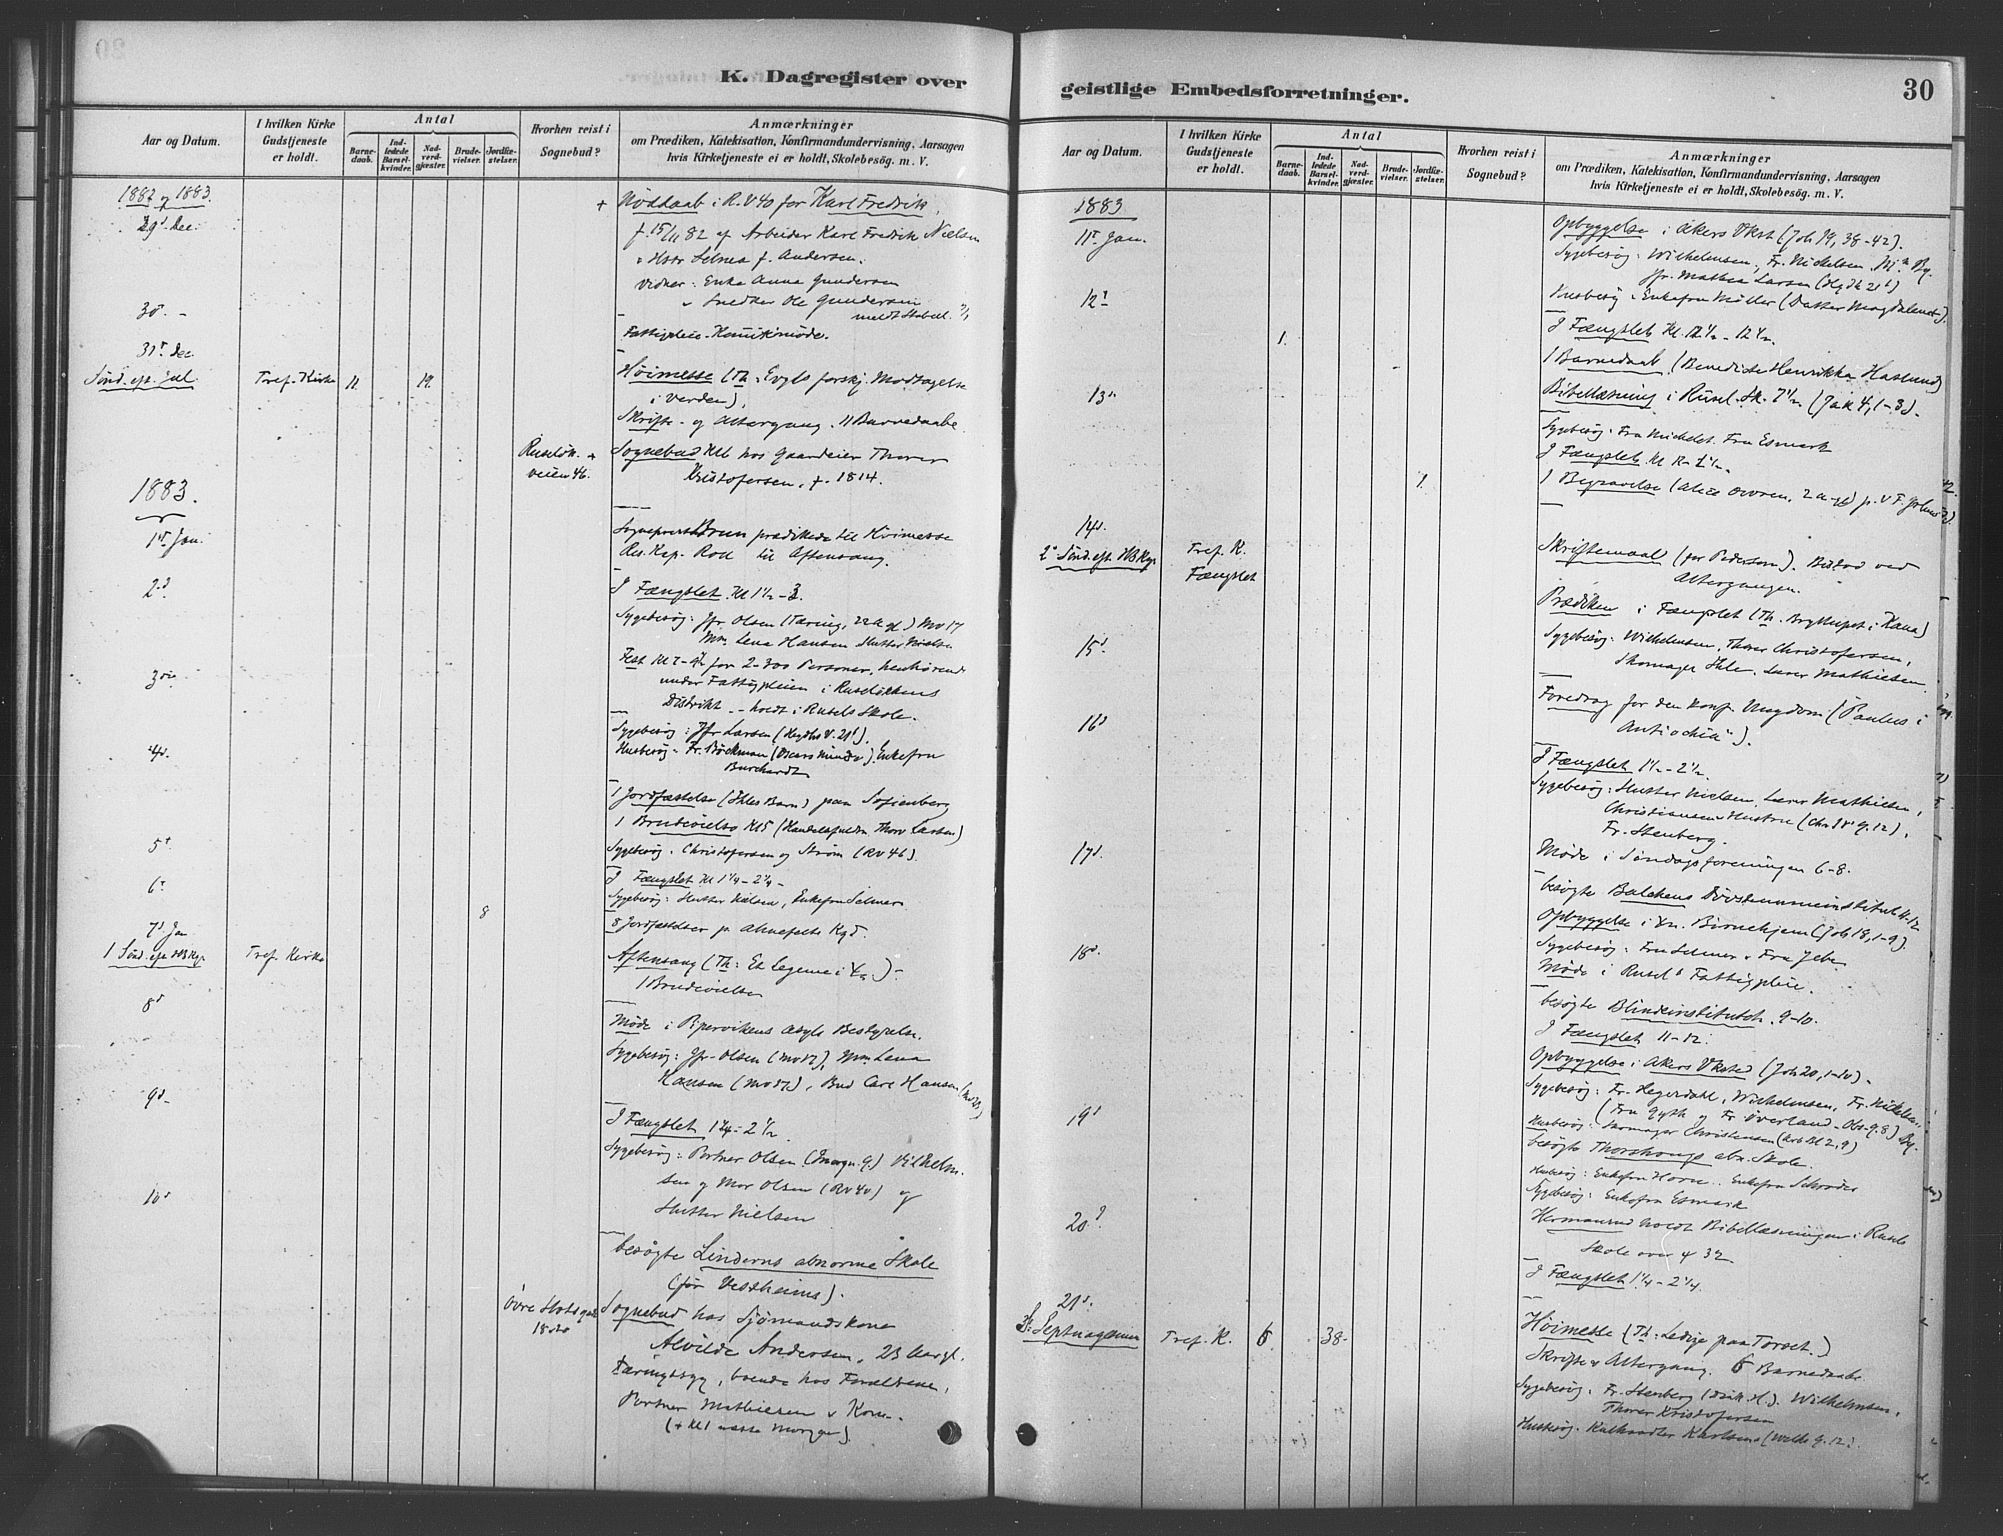 K. Dagregister over
Aar og Datum.
I hvilken Kirke Gudstjeneste er holdt.
Antal
Barnedaab.
Indledede Barselkvinder.
Nadverdgjæster.
Brudevielser.
Jordfæstelser.
Hvorhen reist i Sognebud?
Anmærkninger
om Prædiken, Katekisation, Konfirmandundervisning, Aarsagen
hvis Kirketjeneste ei er holdt, Skolebesög. m. V.
1882 og 1883.
29d Dec.
+ Nöddaab i R.V 40 for Karl Fredrik,
f. 15/11 82 af Arbeider Karl Fredrik Nielsen
Selma f. Andersen.
Vidner: Enke Anna Gundersen
Snedker Ole Gundersen
30 -
Fattigpleie-Komitémöde.
31t Dec.
Sönd. eft. Jul. Tref. Kirke 11. 19.
Höimesse (Th. Evgls forskj. Modtagelse
i Verden).
Skrifte- og Altergang. 11 Barnedaabe
Ruselök-
veien 46.
+ Sognebud hos Gaardeier Thorer
Kristofersen, f. 1814.
1883.
1st Jan.
Sognepræst Brun prædikede til Höimesse
Res. Kap. Roll til Aftensang.
2d
I Fængslet. Kl 1½-3.
Sygebesög: Jfr. Olsen (Tæring, 22 A gl) Mv 17
Mm Lena Hansen Slutter Nielsen
3die
Fest Kl 7-9½ for 2-300 Personer, henhörende
under Fattigpleien i Ruselökkens
Distrikt - holdt i Rusels Skole.
4d.
Sygebesög: Jfr Larsen
Husbesög: Fr. Böckman (Oscars Minde). Enkefru
Burchardt
5t
1 Jordfæstelse (Ihles Barn) paa Sofienberg
1 Brudevielse Kl 5 (Handelsfuldm. Thorv Larsen)
Sygebesög: Christofersen og Ström (RV 46).
6t
I Fængslet Kl 1¼-2¼-
Sygebesög: Slutter Nielsen, Enkefru Selmer.
7d Jan
1 Sönd. eft. H3Kgr. Tref. Kirke 8
8 Jordfæstelser p.
Aftensang (Th: Et Legeme i )-
1 Brudevielse
8d
Möde i Pipervikens Asyls Bestyrelse.
Sygebesög: Jfr-Olsen (Mv 17), Mm Lena
Hansen (Mv 17), Bud Carl Hansen
9d-
I Fængslet 1¼-2½.
Sygebesög: Portner Olsen Vilhelm-
sen og Mor Olsen (RV 40) og
Slutter Nielsen
10d
besögte Linderns abnorme Skole
(för Vestheims).
Övre Slotsgade
18
Sognebud hos Sjömandskone
Alvilde Andersen, 23 Aar gl.
Tæringssyg, boende hos Forældrene,
Portner Mathiesen & Kone.
(+ Kl 1 næste Morgen).
geistlige Embedsforretninger.
30
Aar og Datum.
I hvilken Kirke Gudstjeneste er holdt.
Antal
Barnedaab.
Indledede Barselkvinder.
Nadverdgjæster.
Brudevielser.
Jordfæstelser.
Hvorhen reist i Sognebud?
Anmærkninger
om Prædiken, Katekisation, Konfirmandundervisning, Aarsagen
hvis Kirketjeneste ei er holdt, Skolebesög. m. V.
1883
11t Jan.
Opbyggelse i Akers Vkst (Joh 19, 38-42).
Sygebesög: Wilhelmsen, Fr. Nickelsen,
Jfr. Mathea Larsen
12t
Husbesög: Enkefru Möller (Datter Magdalene).
1.
I Fængslet Kl. 12½.
1 Barnedaab (Benedicte Henrikka Haslund)
13d.
Bibellæsning i Rusel. Sk. 7½ (Jak 4, 1-3).
Sygebesög: Fru Michelet. Fru Esmark
I Fængslet Kl
1.
1 Begravelse p. V F.
14d.
2d Sönd. eft. H3Kgr. Tref. K.
Fængslet
Skriftemaal (for Pedersen). Bistod ved
Altergangen.
Prædiken i Fængslet (Th. Bryllupet i Kana)
15d.
Sygebesög: Wilhelmsen, Thorer Christofersen,
Skomager Ihle, Lærer Mathiesen.
16d
Foredrag for den konf. Ungdom ("Paulus i
Antiochia").
I Fængslet 1½-2½.
Sygebesög: Slutter Nielsen, Lærer Mathiesen,
Christiansens Hustru
Fr. Stenberg.
17d.
Möde i Söndagsforeningen 6-8.
besögte Balchens Dövstummeinstitut 11-12
Opbyggelse i Börnehjem (Joh 18, 1-9).
Sygebesög: Fru Selmer & Fru Jebe
18d.
Möde i Rusels Fattigpleie.
besögte Blindeinstitutet. 9-10.
I Fængslet 11-12.
Opbyggelse i Akers Vksted (Joh 20, 1-10)-
Sygebesög: Fr. Hegerdahl, Wilhelmsen, Fr. Nickelsen,
(Fru Gyth og Fr. Överland
19d
Husbesög: Skomager Christensen
besögte Thorshaugs abn. Skole.
Husbesög: Enkefru Horne. Enkefru Schröder
Sygebesög: Enkefru Esmark
20d
Hermanrud holdt Bibellæsningen i Rusels
Skole over
I Fængslet 1¼-2¼.
21d.
S. Septuagesima Tref. K. 6 38
Höimesse (Th: Ledige paa Torvet.)
Skrifte & Altergang. 6 Barnedaabe
Sygebesög: Fr. Stenberg Wilhelmsen,
Thorer Kristofersen
Husbesög: Kulhandler Karlsen